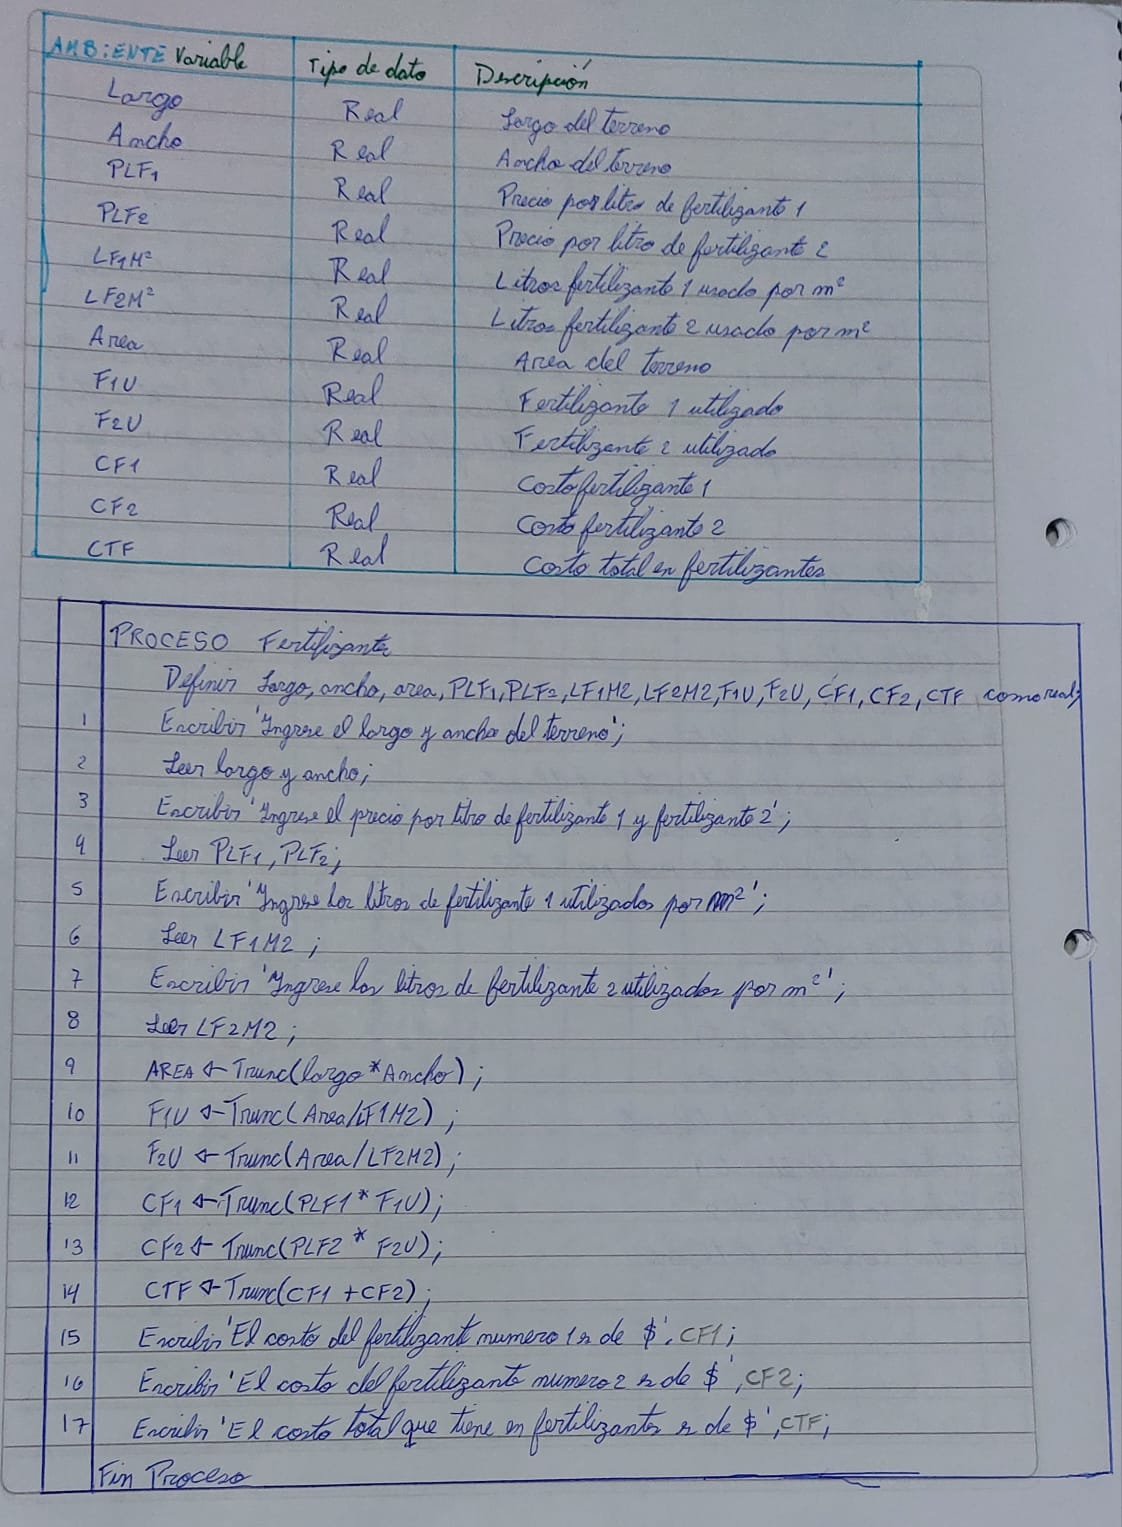 AMBIENTE Variable Tipo de dato Descripción
Largo Real Largo del terreno
Ancho Real Ancho del terreno
PLF1 Real Precio por litro de fertilizante 1
PLF2 Real Precio por litro de fertilizante 2
LF1M² Real Litros fertilizante 1 usado por m²
LF2M² Real Litros fertilizante 2 usado por m²
Area Real Area del terreno
F1U Real Fertilizante 1 utilizado
F2U Real Fertilizante 2 utilizado
CF1 Real Costo fertilizante 1
CF2 Real Costo fertilizante 2
CTF Real Costo total en fertilizantes
PROCESO Fertilizante
Definir Largo, ancho, area, PLF1, PLF2, LF1M2, LF2M2, F1U, F2U, CF1, CF2, CTF como real;
1 Escribir 'Ingrese el largo y ancho del terreno';
2 Leer largo y ancho;
3 Escribir 'Ingrese el precio por litro de fertilizante 1 y fertilizante 2';
4 Leer PLF1, PLF2;
5 Escribir 'Ingrese los litros de fertilizante 1 utilizados por m²';
6 Leer LF1M2;
7 Escribir 'Ingrese los litros de fertilizante 2 utilizados por m²';
8 Leer LF2M2;
9 AREA ← Trunc(largo*Ancho);
10 F1U ← Trunc(Area/LF1M2);
11 F2U ← Trunc(Area/LF2M2);
12 CF1 ← Trunc(PLF1* F1U);
13 CF2 ← Trunc(PLF2 * F2U);
14 CTF ← Trunc(CF1 +CF2);
15 Escribir 'El costo del fertilizante numero 1 es de $', CF1;
16 Escribir 'El costo del fertilizante numero 2 es de $', CF2;
17 Escribir 'El costo total que tiene en fertilizantes es de $', CTF;
Fin Proceso